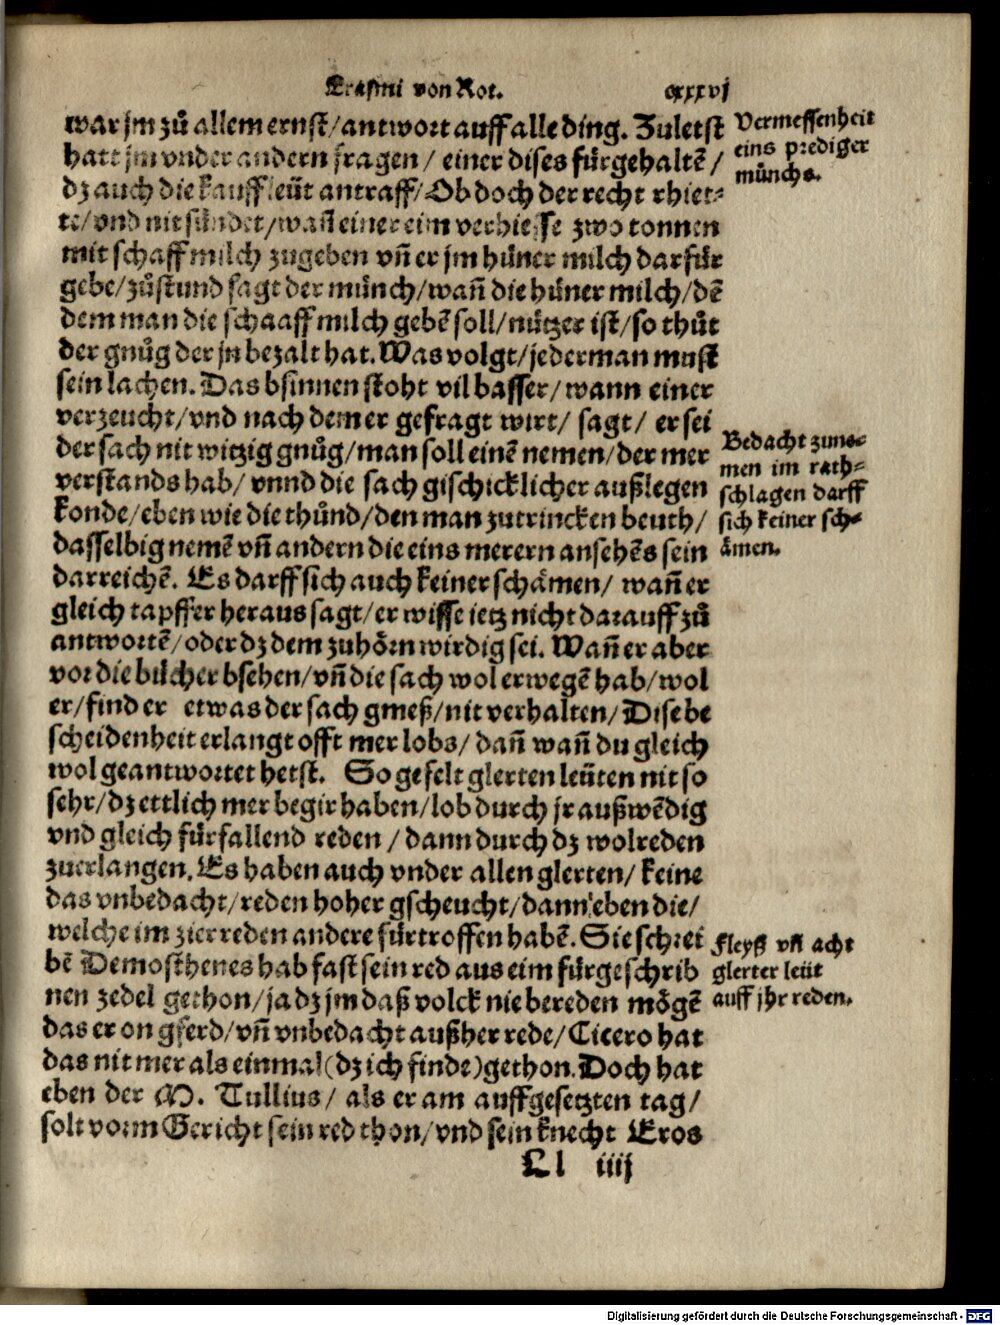 Erasmi von Rot. cxxxvj
war jm zů allem ernst/antwort auff alle ding. Zuletst
hatt jm vnder andern fragen / einer dises fürgehaltē /
dz auch die kauffleüt antraff/Ob doch der recht rhiet-
te/vnd nit sündet/wañ einer eim verhiesse zwo tonnen
mit schaff milch zugeben vñ er jm hüner milch darfür
gebe/zůstund sagt der münch/wañ die hüner milch/dē
dem man die schaaff milch gebē soll/nützer ist/so thůt
der gnůg der jn bezalt hat. Was volgt/jederman must
sein lachen. Das bsinnen stoht vil basser/wann einer
verzeucht/vnd nach dem er gefragt wirt/ sagt/ er sei
der sach nit witzig gnůg/man soll einē nemen/der mer
verstands hab/ vnnd die sach gischicklicher außlegen
konde/eben wie die thůnd/den man zutrincken beuth/
dasselbig nemē vñ andern die eins merern ansehēs sein
darreichē. Es darff sich auch keiner schämen/ wañ er
gleich tapffer heraus sagt/er wisse ietz nicht darauff zů
antwortē/oder dz dem zuhörn wirdig sei. Wañ er aber
vor die bücher bsehen/vñ die sach wol erwegē hab/wol
er/find er etwas der sach gmeß/nit verhalten/Dise be
scheidenheit erlangt offt mer lobs/ dañ wañ du gleich
wol geantwortet hetst. So gefelt glerten leüten nit so
sehr/dz ettlich mer begir haben/lob durch jr außwēdig
vnd gleich fürfallend reden / dann durch dz wolreden
zuerlangen. Es haben auch vnder allen glerten/ keine
das vnbedacht/reden hoher gscheucht/dann eben die/
welche im zier reden andere fürtroffen habē. Sie schrei
bē Demosthenes hab fast sein red aus eim fürgeschrib
nen zedel gethon/ja dz jm daß volck nie bereden mögē
das er on gferd/vñ vnbedacht außher rede/Cicero hat
das nit mer als einmal(dz ich finde)gethon. Doch hat
eben der M. Tullius/ als er am auffgesetzten tag/
solt vorm Gericht sein red thon/vnd sein knecht Eros
Ll iiij
Vermessenheit
eins prediger
münchs.
Bedacht zune-
men im rath-
schlagen darff
sich keiner sch-
ämen.
Fleyß vñ acht
glerter leüt
auff jhr reden.
Digitalisierung gefördert durch die Deutsche Forschungsgemeinschaft - DFG